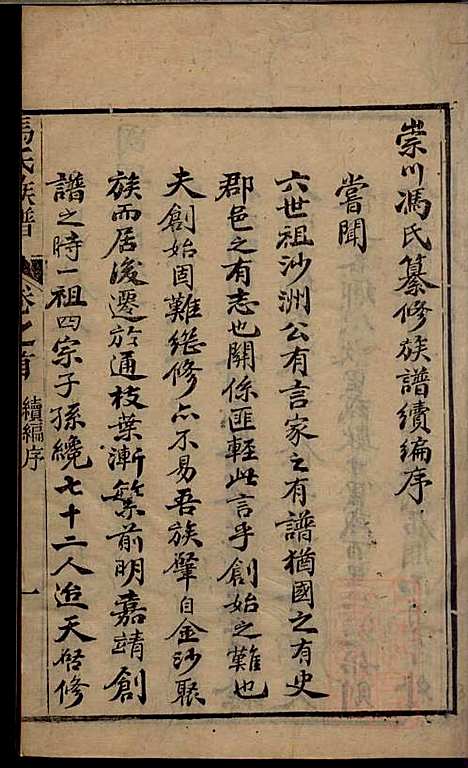 崇川馮氏纂修族譜續編序
嘗聞
六世祖沙洲公有言家之有譜猶國之有史
郡邑之有志也關係匪輕此言乎創始之難也
夫創始固難継修亦不易吾族肇自金沙聚
族而居後遷於通枝葉漸繁前明嘉靖創
譜之時一祖四宗子孫纔七十二人迨天啓修
馮氏族譜
卷之首
續編序
一